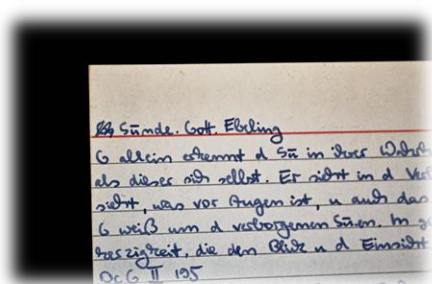 Sünde. Gott. Ebeling
G allein erkennt d Sü in ihrer Wahrh
als dieser sich selbst. Er sieht in d Ver
sieht, was vor Augen ist, u auch das
G weiß um d verborgenen Sü.en. In
herzigkeit, die den Blick u d Einsicht
DcG II 195